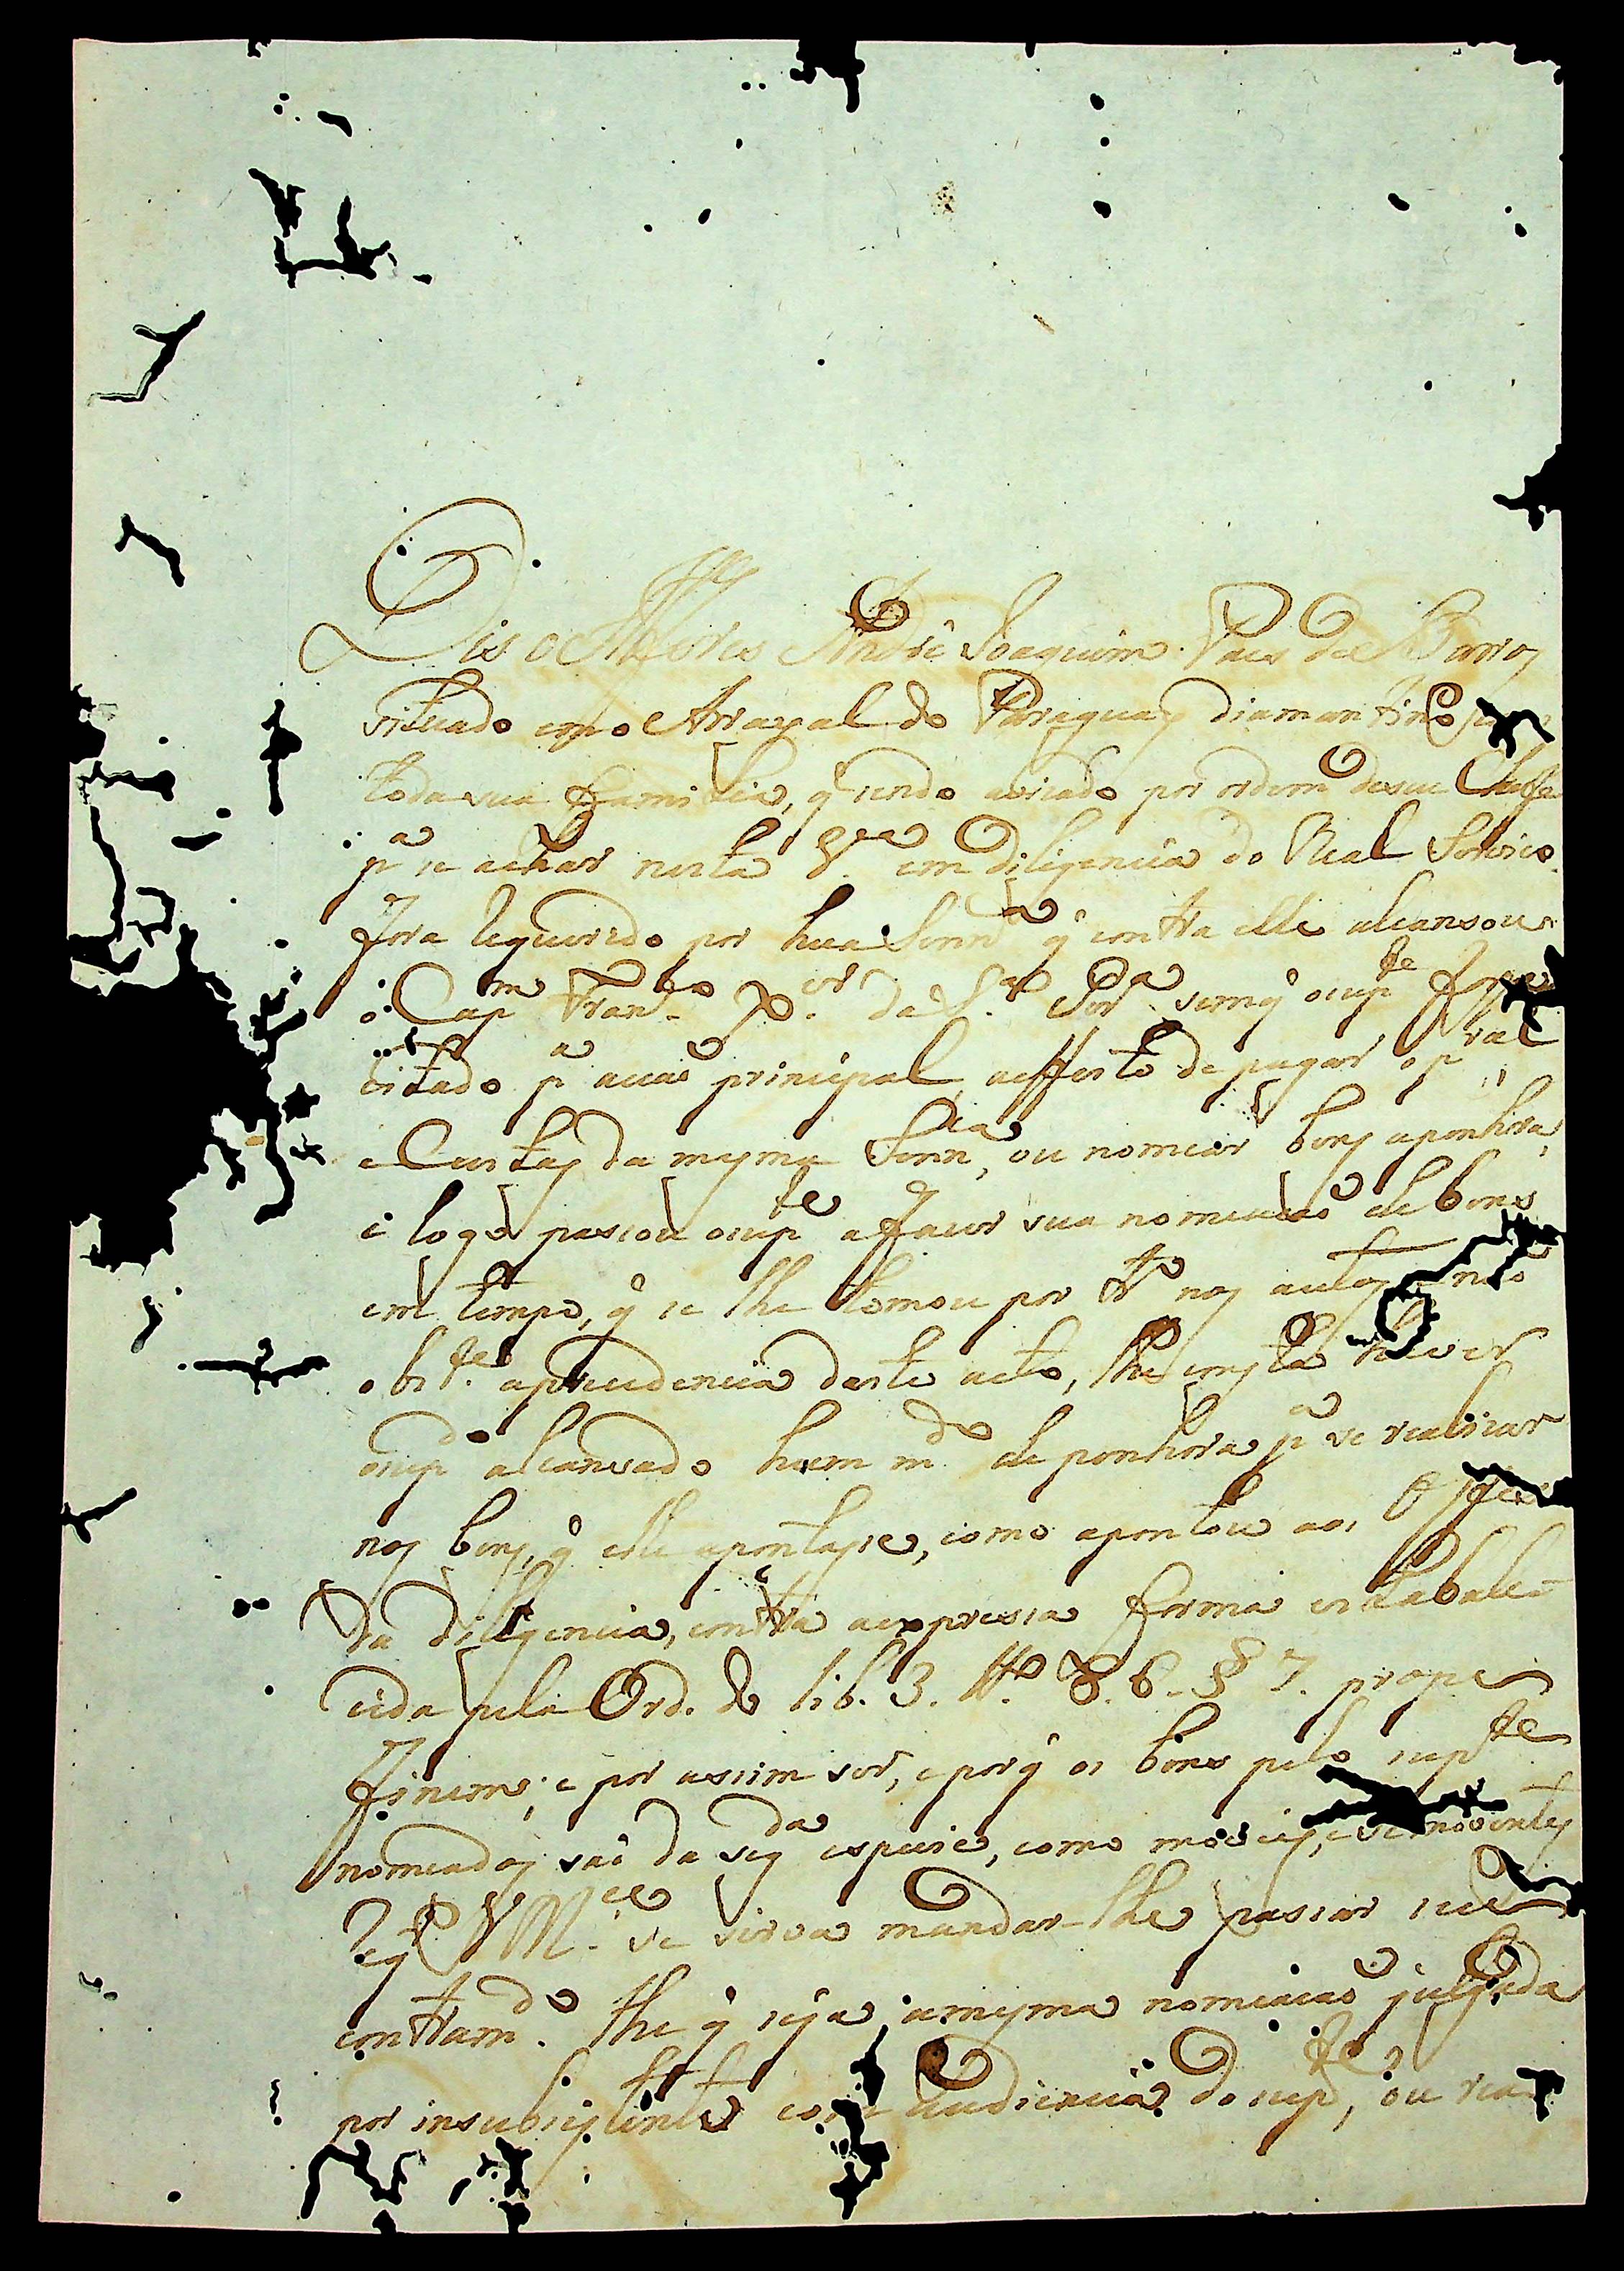 Dis o Alferes André Joaquim Paes de Barros
situado em o Arrayal do Paraguay diamantino
toda sua Familia, q̃ sendo avizado por ordem de seu Cheffe
pª se achar nesta Vª em diligencia do Real Servico
fora requerido por huã Sennª q̃ contra elle alcansou
o Capᵐ Franᶜᵒ Xᵉʳ da Sª
bitado pª accaõ principal, aeffeito de pagar o pʳᵃˡ
e Custas da mesma Sennᶜᵃ, ou nomear bens apenhora,
e logo passou osupᵗᵉ afacer sua nomeacaõ de bens
em tempo, q̃ se lhe tomou por tº nos autos e naõ
obsᵗᵉ aprudencia deste acto, lhe consta haver
osupᵈᵒ alcansado hum mᵈᵒ de penhora pª se realisar
nos bens, q̃ elle apontasse, como apontou aos
da diligencia, contra aexpressa forma estabale-
cida pela Ord. do lib. 3. ttº 8.6. § 7. prope
finem; e por assim ser, e porq̃ os bens pelo supᵗᵉ
nomeados saõ da segᵈᵃ especie, como moveis, e semoventes
P. VMᶜᵉ se sirva mandar-lhe passar
contramᵈᵒ. the q̃ seja amesma nomeacaõ julgada
por insubsistente com audiencia do supᵗᵉ, ou